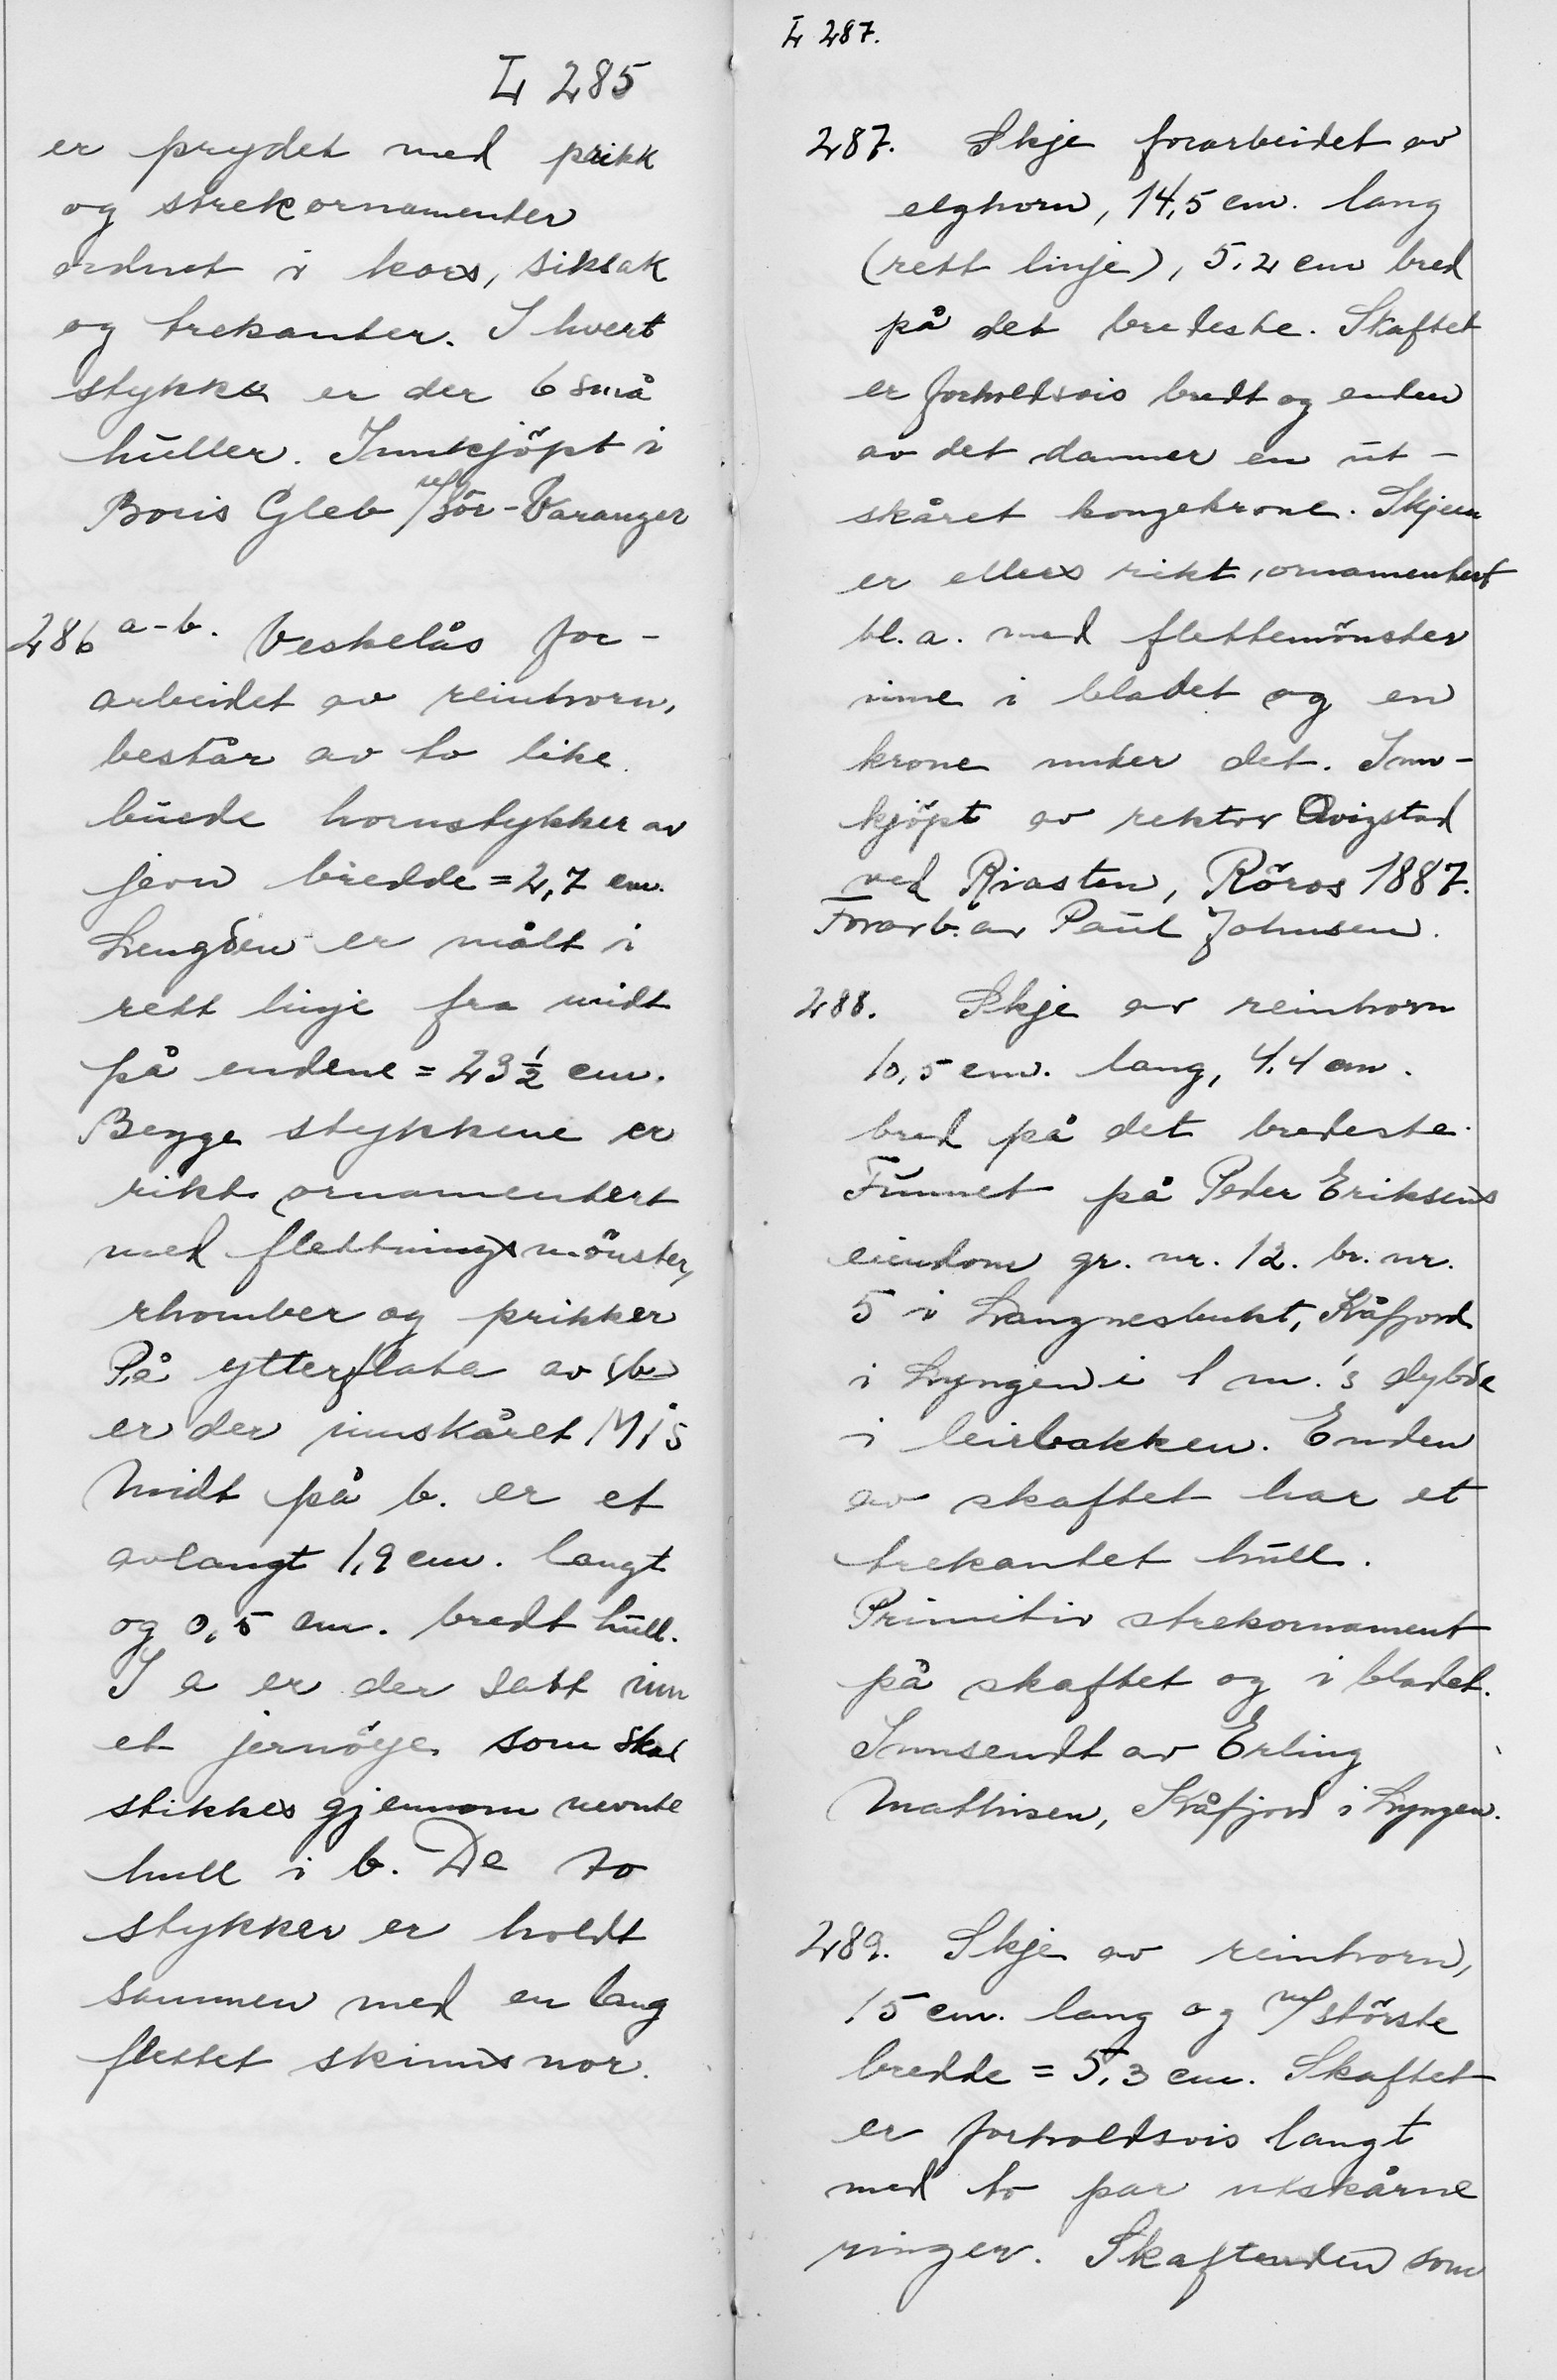 L 285
er prydet med prikk
og strekornamenter
ordnet i kors, siksak
og trekanter. I hvert
stykke er der 6 små
huller. Innkjöpt i
Boris Gleb i Sör-Varanger
286 a-b. Veskelås for-
arbeidet av reinhorn,
består av to like
buede hornstykker av
jevn bredde = 2,7 cm.
Lengden er målt i
rett linje fra midt
på endene = 23 1/2 cm.
Begge stykkene er
rikt ornamentert
med flettningsmönster,
rhomber og prikker
På ytterflate av b
er der innskåret MIS
Midt på b. er et
avlangt 1,9 cm. langt
og 0,5 cm. bredt hull.
I a er der satt inn
et jernöye som skal
stikkes gjennom nevnte
hull i b. De to
stykker er holdt
sammen med en lang
flettet skinnsnor.
L 287.
287. Skje forarbeidet av
elghorn, 14,5 cm. lang
(rett linje), 5,2 cm bred
på det bredeste. Skaftet
er forholdsvis bredt og enden
av det danner en ut-
skåret kongekrone. Skjeen
er ellers rikt ornamentert
bl. a. med flettemönster
inne i bladet og en
krone under det. Inn-
kjöpt av rektor Qvigstad
ved Riasten, Röros 1887.
Forarb. av Paul Johnsen.
288. Skje av reinhorn
10,5 cm. lang, 4,4 cm.
bred på det bredeste.
Funnet på Peder Eriksens
eiendom gr. nr. 12. br. nr.
5 i Langnesbukt, Kåfjord
i Lyngen i 1 m.'s dybde
i leirbakken. Enden
av skaftet har et
trekantet hull.
Primitiv strekornament
på skaftet og i bladet.
Innsendt av Erling
Mathisen, Kåfjord i Lyngen.
289. Skje av reinhorn,
15 cm. lang og m/ störste
bredde = 5,3 cm. Skaftet
er forholdsvis langt
med to par utskårne
ringer. Skaftenden som